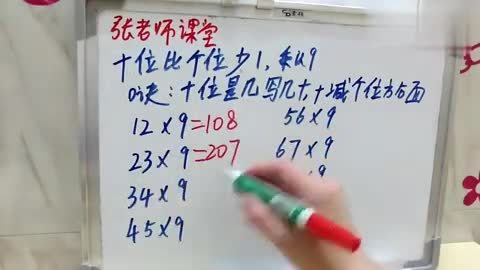 张老师课堂
十位比个位少1,乘以9
口诀:十位是几写几十,十减个位方后面
12×9=108 56×9
23×9=207 67×9
34×9 ×9
45×9